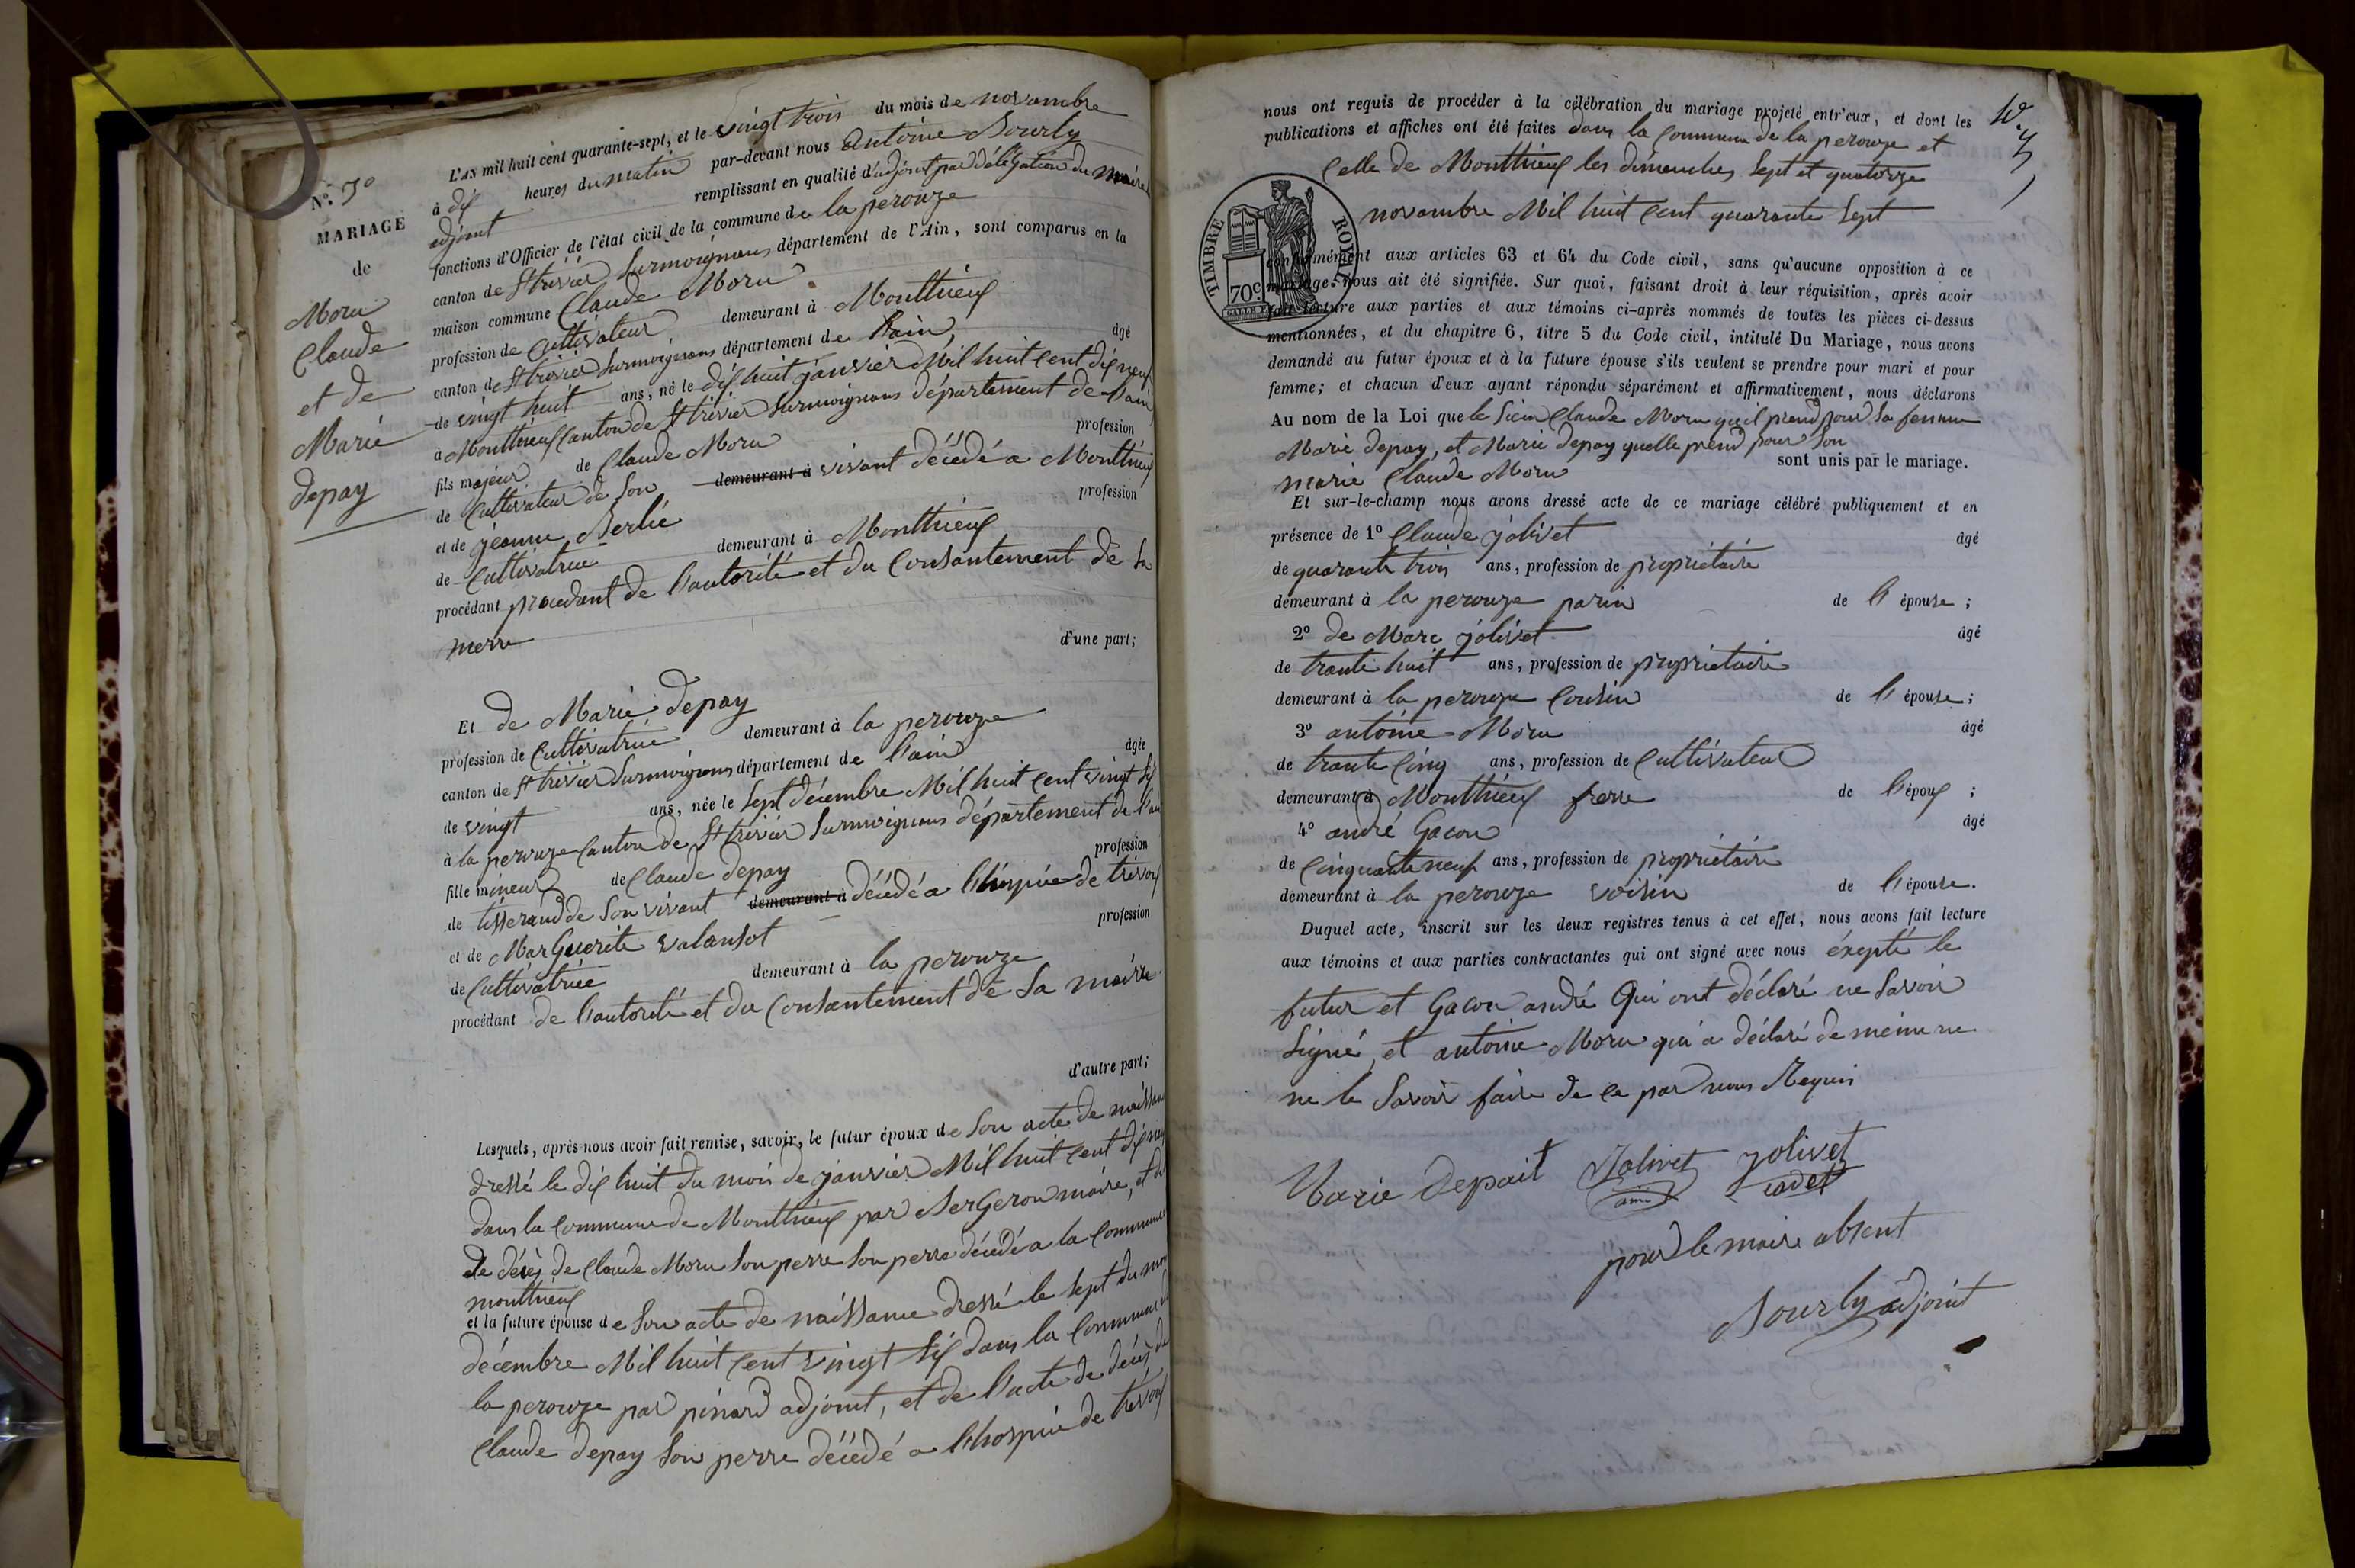 N.º 5º
MARIAGE
de
Moru
Claude
et de
Marie
depay
L'AN mil huit cent quarante-sept, et le vingt trois du mois de novambre
à dix heures du matin par-devant nous antoine Sourly
adjoint remplissant en qualité d'adjoint par délégation du maire
fonctions d'Officier de l'état civil de la commune de la perouze
canton de St trivier Surmoignans département de l'Ain, sont comparus en la
maison commune Claude Moru
profession de Cultivateur demeurant à Monthieux
canton de St trivier Surmoignans département de l'ain âgé
de vingt huit ans, né le dix huit janvier Mil huit Cent dix neuf
à Monthieux Canton de St trivier Surmoignans département de l'ain
fils majeur de Claude Moru profession
de Cultivateur de Son demeurant à vivant décédé a Monthieux
et de jeanne Berlié profession
de Cultivatrice demeurant à Monthieux
procédant procedant de l'autorité et du Consantement de Sa
merre d'une part;
Et de Marie depay
profession de Cultivatrice demeurant à la perouze
canton de St trivier Surmoignans département de l'ain âgée
de vingt ans, née le Sept décembre Mil huit Cent vingt Six
à la perouze Canton de St trivier Surmoignans département de l'ain
fille mineur de Claude depay profession
de tisserand de Son vivant demeurant à décédé a l'hospice de trévoux
et de MarGuerite valansot profession
de Cultivatrice demeurant à la perouze
procédant de l'autorité et du Consantement de Sa mairre
d'autre part;
Lesquels, après nous avoir fait remise, savoir, le futur époux de Son acte de naissance
dressé le dix huit du mois de janvier Mil huit Cent dix neuf
dans la Commune de Monthieux par BerGeron maire, et
de décès de Claude Moru Son perre Son perre décédé a la Commune
monthieux
et la future épouse de Son acte de naissance dressé le Sept du mois
décembre Mil huit Cent vingt Six dans la Commune de
la perouze par pinard adjoint, et de l'acte de décès de
Claude depay Son perre décédé a l'hospice de trévoux
nous ont requis de procéder à la célébration du mariage projeté entr'eux, et dont les
publications et affiches ont été faites dans la Commune de la perouze et
Celle de Monthieux les dimanches Sept et quatorze
novambre Mil huit Cent quarante Sept
TIMBRE ROYAL
70c.
conformément aux articles 63 et 64 du Code civil, sans qu'aucune opposition à ce
mariage nous ait été signifiée. Sur quoi, faisant droit à leur réquisition, après avoir
fait lecture aux parties et aux témoins ci-après nommés de toutes les pièces ci-dessus
mentionnées, et du chapitre 6, titre 5 du Code civil, intitulé Du Mariage, nous avons
demandé au futur époux et à la future épouse s'ils veulent se prendre pour mari et pour
femme; et chacun d'eux ayant répondu séparément et affirmativement, nous déclarons
Au nom de la Loi que le Sieur Claude Moru qu'il prend pour Sa femme
Marie depay, et Marie depay quelle prend pour Son
marie Claude Moru sont unis par le mariage.
Et sur-le-champ nous avons dressé acte de ce mariage célébré publiquement et en
présence de 1º Claude jolivet âgé
de quarante trois ans, profession de propriétaire
demeurant à la perouze parin de l'épouse;
2º de Marc jolivet âgé
de trante huit ans, profession de propriétaire
demeurant à la perouze Cousin de l'épouse;
3º antoine Moru âgé
de trante Cinq ans, profession de Cultivateur
demeurant à Monthieux frerre de l'époux;
4º andré Gacon âgé
de Cinquante neuf ans, profession de propriétaire
demeurant à la perouze voisin de l'épouse.
Duquel acte, inscrit sur les deux registres tenus à cet effet, nous avons fait lecture
aux témoins et aux parties contractantes qui ont signé avec nous éxepté le
futur et Gacon andré Qui ont déclaré ne Savoir
Signé, et antoine Moru qui a déclaré de même ne
ne le Savoir faire de ce par nous Requis
Marie depait Jolivet jolivet
ainé cadet
pour le maire absent
Sourly adjoint